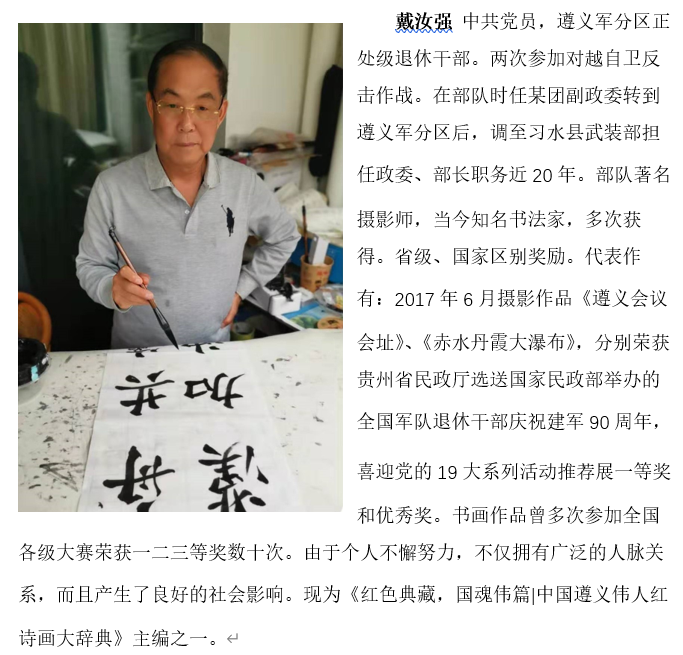 戴汝强 中共党员，遵义军分区正
处级退休干部。两次参加对越自卫反
击作战。在部队时任某团副政委转到
遵义军分区后，调至习水县武装部担
任政委、部长职务近 20 年。部队著名
摄影师，当今知名书法家，多次获
得。省级、国家区别奖励。代表作
有：2017 年 6 月摄影作品《遵义会议
会址》、《赤水丹霞大瀑布》，分别荣获
贵州省民政厅选送国家民政部举办的
全国军队退休干部庆祝建军 90 周年，
喜迎党的 19 大系列活动推荐展一等奖
和优秀奖。书画作品曾多次参加全国
各级大赛荣获一二三等奖数十次。由于个人不懈努力，不仅拥有广泛的人脉关
系，而且产生了良好的社会影响。现为《红色典藏，国魂伟篇|中国遵义伟人红
诗画大辞典》主编之一。